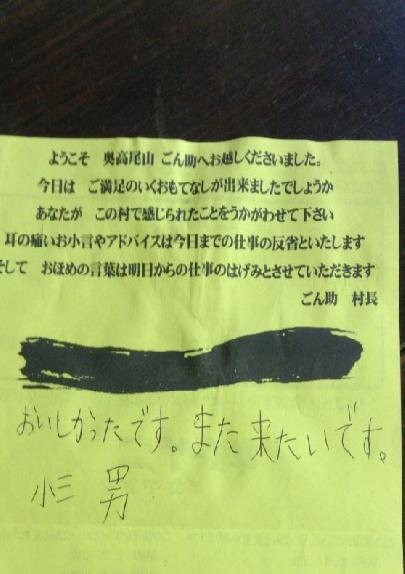 ようこそ 奥高尾山 ごん助へお越しくださいました。
今日は ご満足のいくおもてなしが出来ましたでしょうか
あなたが この村で感じられたことをうかがわせて下さい
耳の痛いお小言やアドバイスは今日までの仕事の反省といたします
そして おほめの言葉は明日からの仕事のはげみとさせていただきます
ごん助 村長
おいしかったです。また来たいです。
小三 男